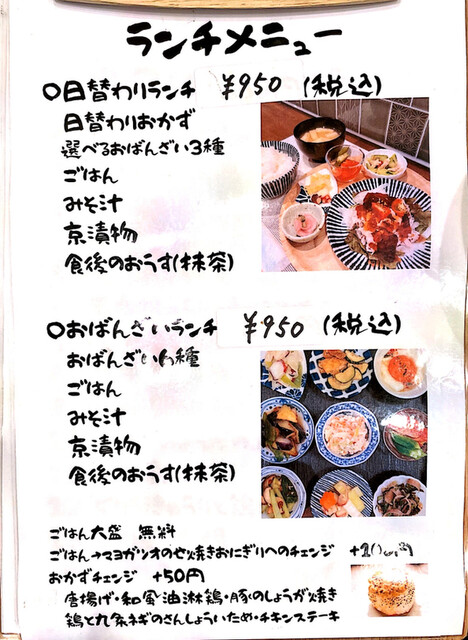 ランチメニュー
○日替わりランチ ¥950 (税込)
日替わりおかず
選べるおばんざい3種
ごはん
みそ汁
京漬物
食後のおうす(抹茶)
○おばんざいランチ ¥950 (税込)
おばんざい 種
ごはん
みそ汁
京漬物
食後のおうす(抹茶)
ごはん大盛 無料
ごはん→マヨガツオのせ焼きおにぎりへのチェンジ
おかずチェンジ +50円
唐揚げ・和風油淋鶏・豚のしょうが焼き
鶏と九条ネギのさんしょういため・チキンステーキ